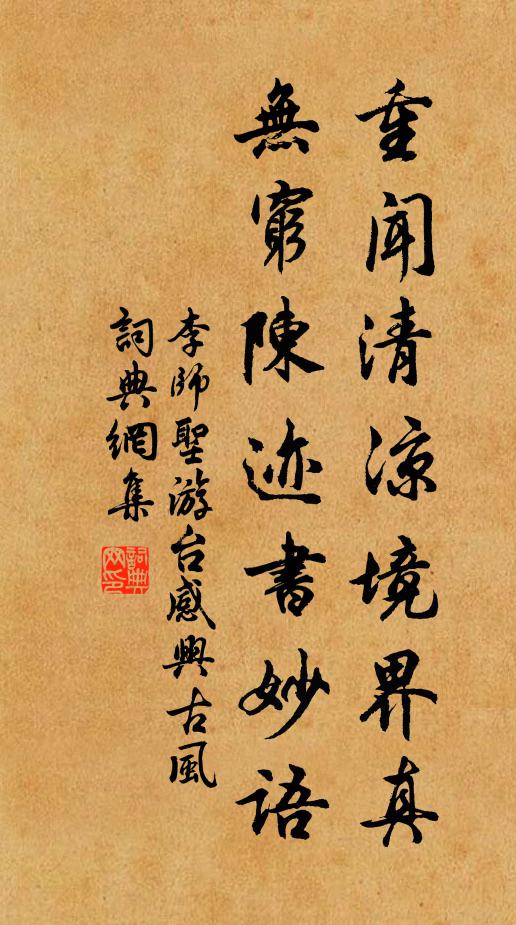 重闻清凉境界真
無窮陳迹書妙語
李師聖游台感興古風
詞典網集
詞典網印